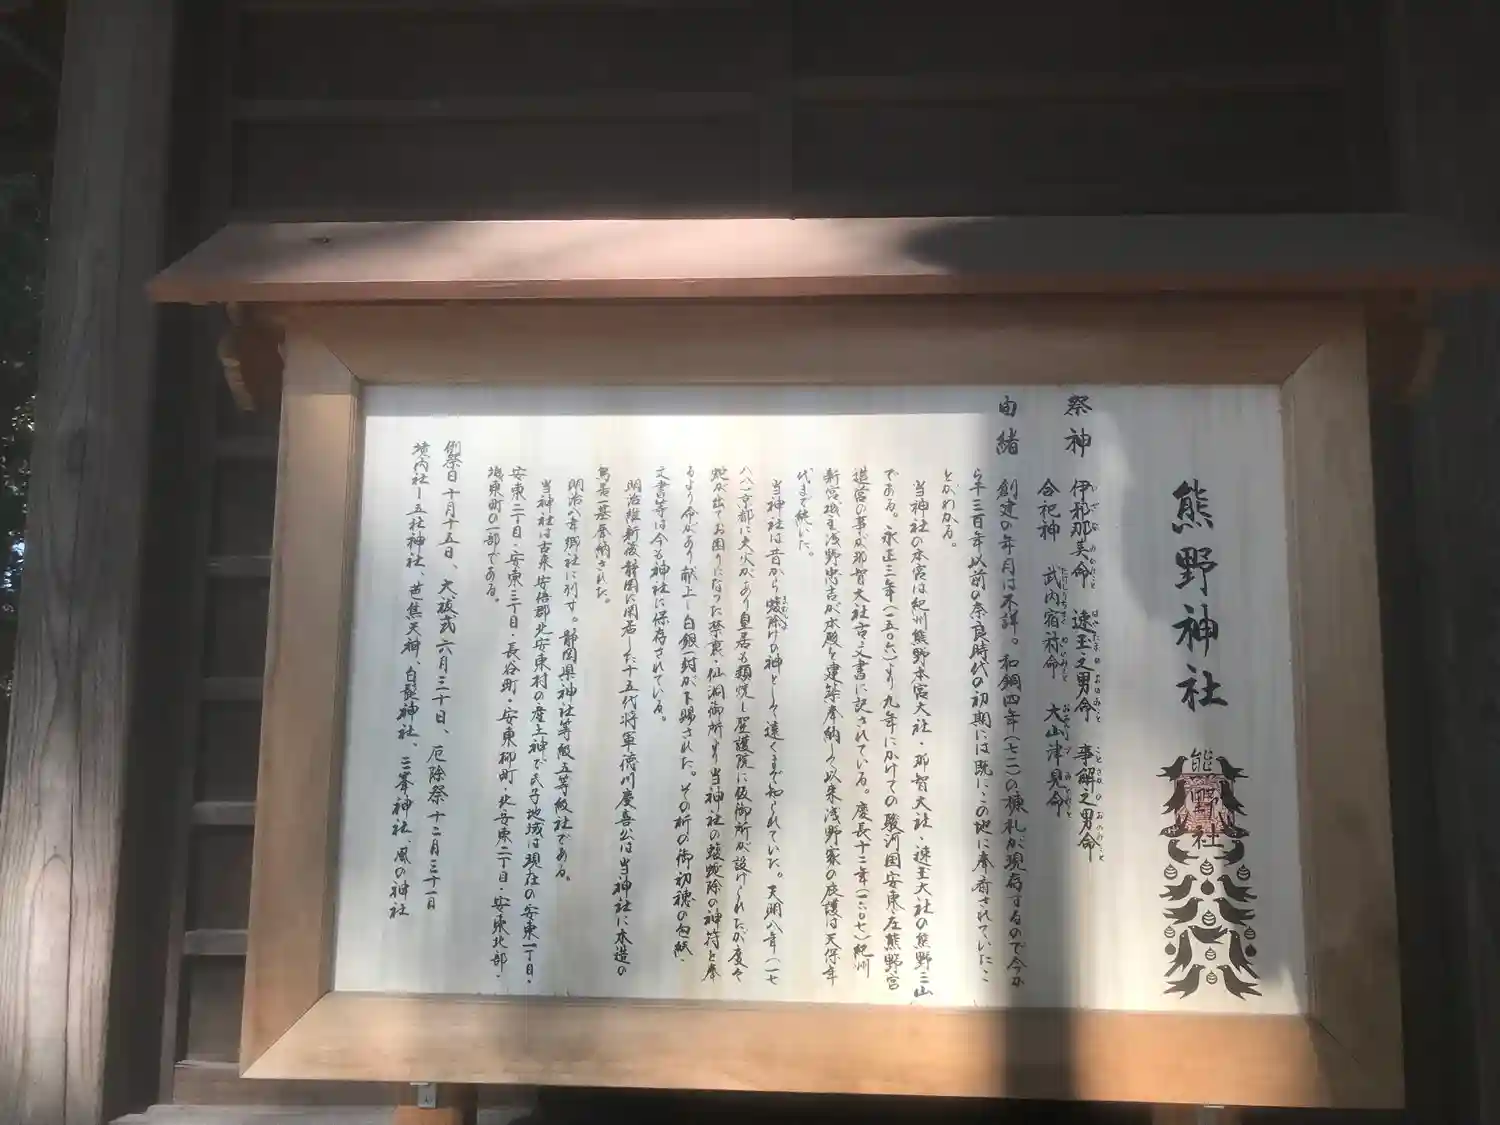 熊野神社
熊野
社
祭神 伊邪那美命 速玉之男命 事解之男命
合祀神 武内宿祢命 大山津見命
由緒 創建の年月は不詳。和銅四年(七一一)の棟札が現存するので今か
ら千三百年以前の奈良時代の初期には既に、この地に奉斎されていたこ
とがわかる。
当神社の本宮は紀州熊野本宮大社・那智大社・速玉大社の熊野三山
である。永正三年(一五〇六)より九年にかけての駿河国安東庄熊野宮
造営の事が那智大社古文書に記されている。慶長十二年(一六〇七)紀州
新宮城主浅野忠吉が本殿を建築奉納し、以来浅野家の庇護は天保年
代まで続いた。
当神社は昔から蝮除けの神として遠くまで知られていた。天明八年(一七
八八)京都に大火があり皇居も類焼し聖護院に仮御所が設けられたが度々
蛇が出てお困りになった禁裏・仙洞御所より当神社の蝮蛇除の神符を奉
るよう命があり献上し白銀一封が下賜された。その折の御初穂の包紙、
文書等は今も神社に保存されている。
明治維新後静岡に閑居した十五代将軍徳川慶喜公は当神社に木造の
鳥居一基奉納された。
明治八年郷社に列す。静岡県神社等級五等級社である。
当神社は古来安倍郡北安東村の産土神で氏子地域は現在の安東一丁目・
安東二丁目・安東三丁目・長谷町・安東柳町・北安東二丁目・安東北部・
城東町の一部である。
例祭日 十月十五日、大祓式 六月三十日、厄除祭 十二月三十一日
境内社 五社神社、芭蕉天神、白髭神社、三峯神社、風の神社